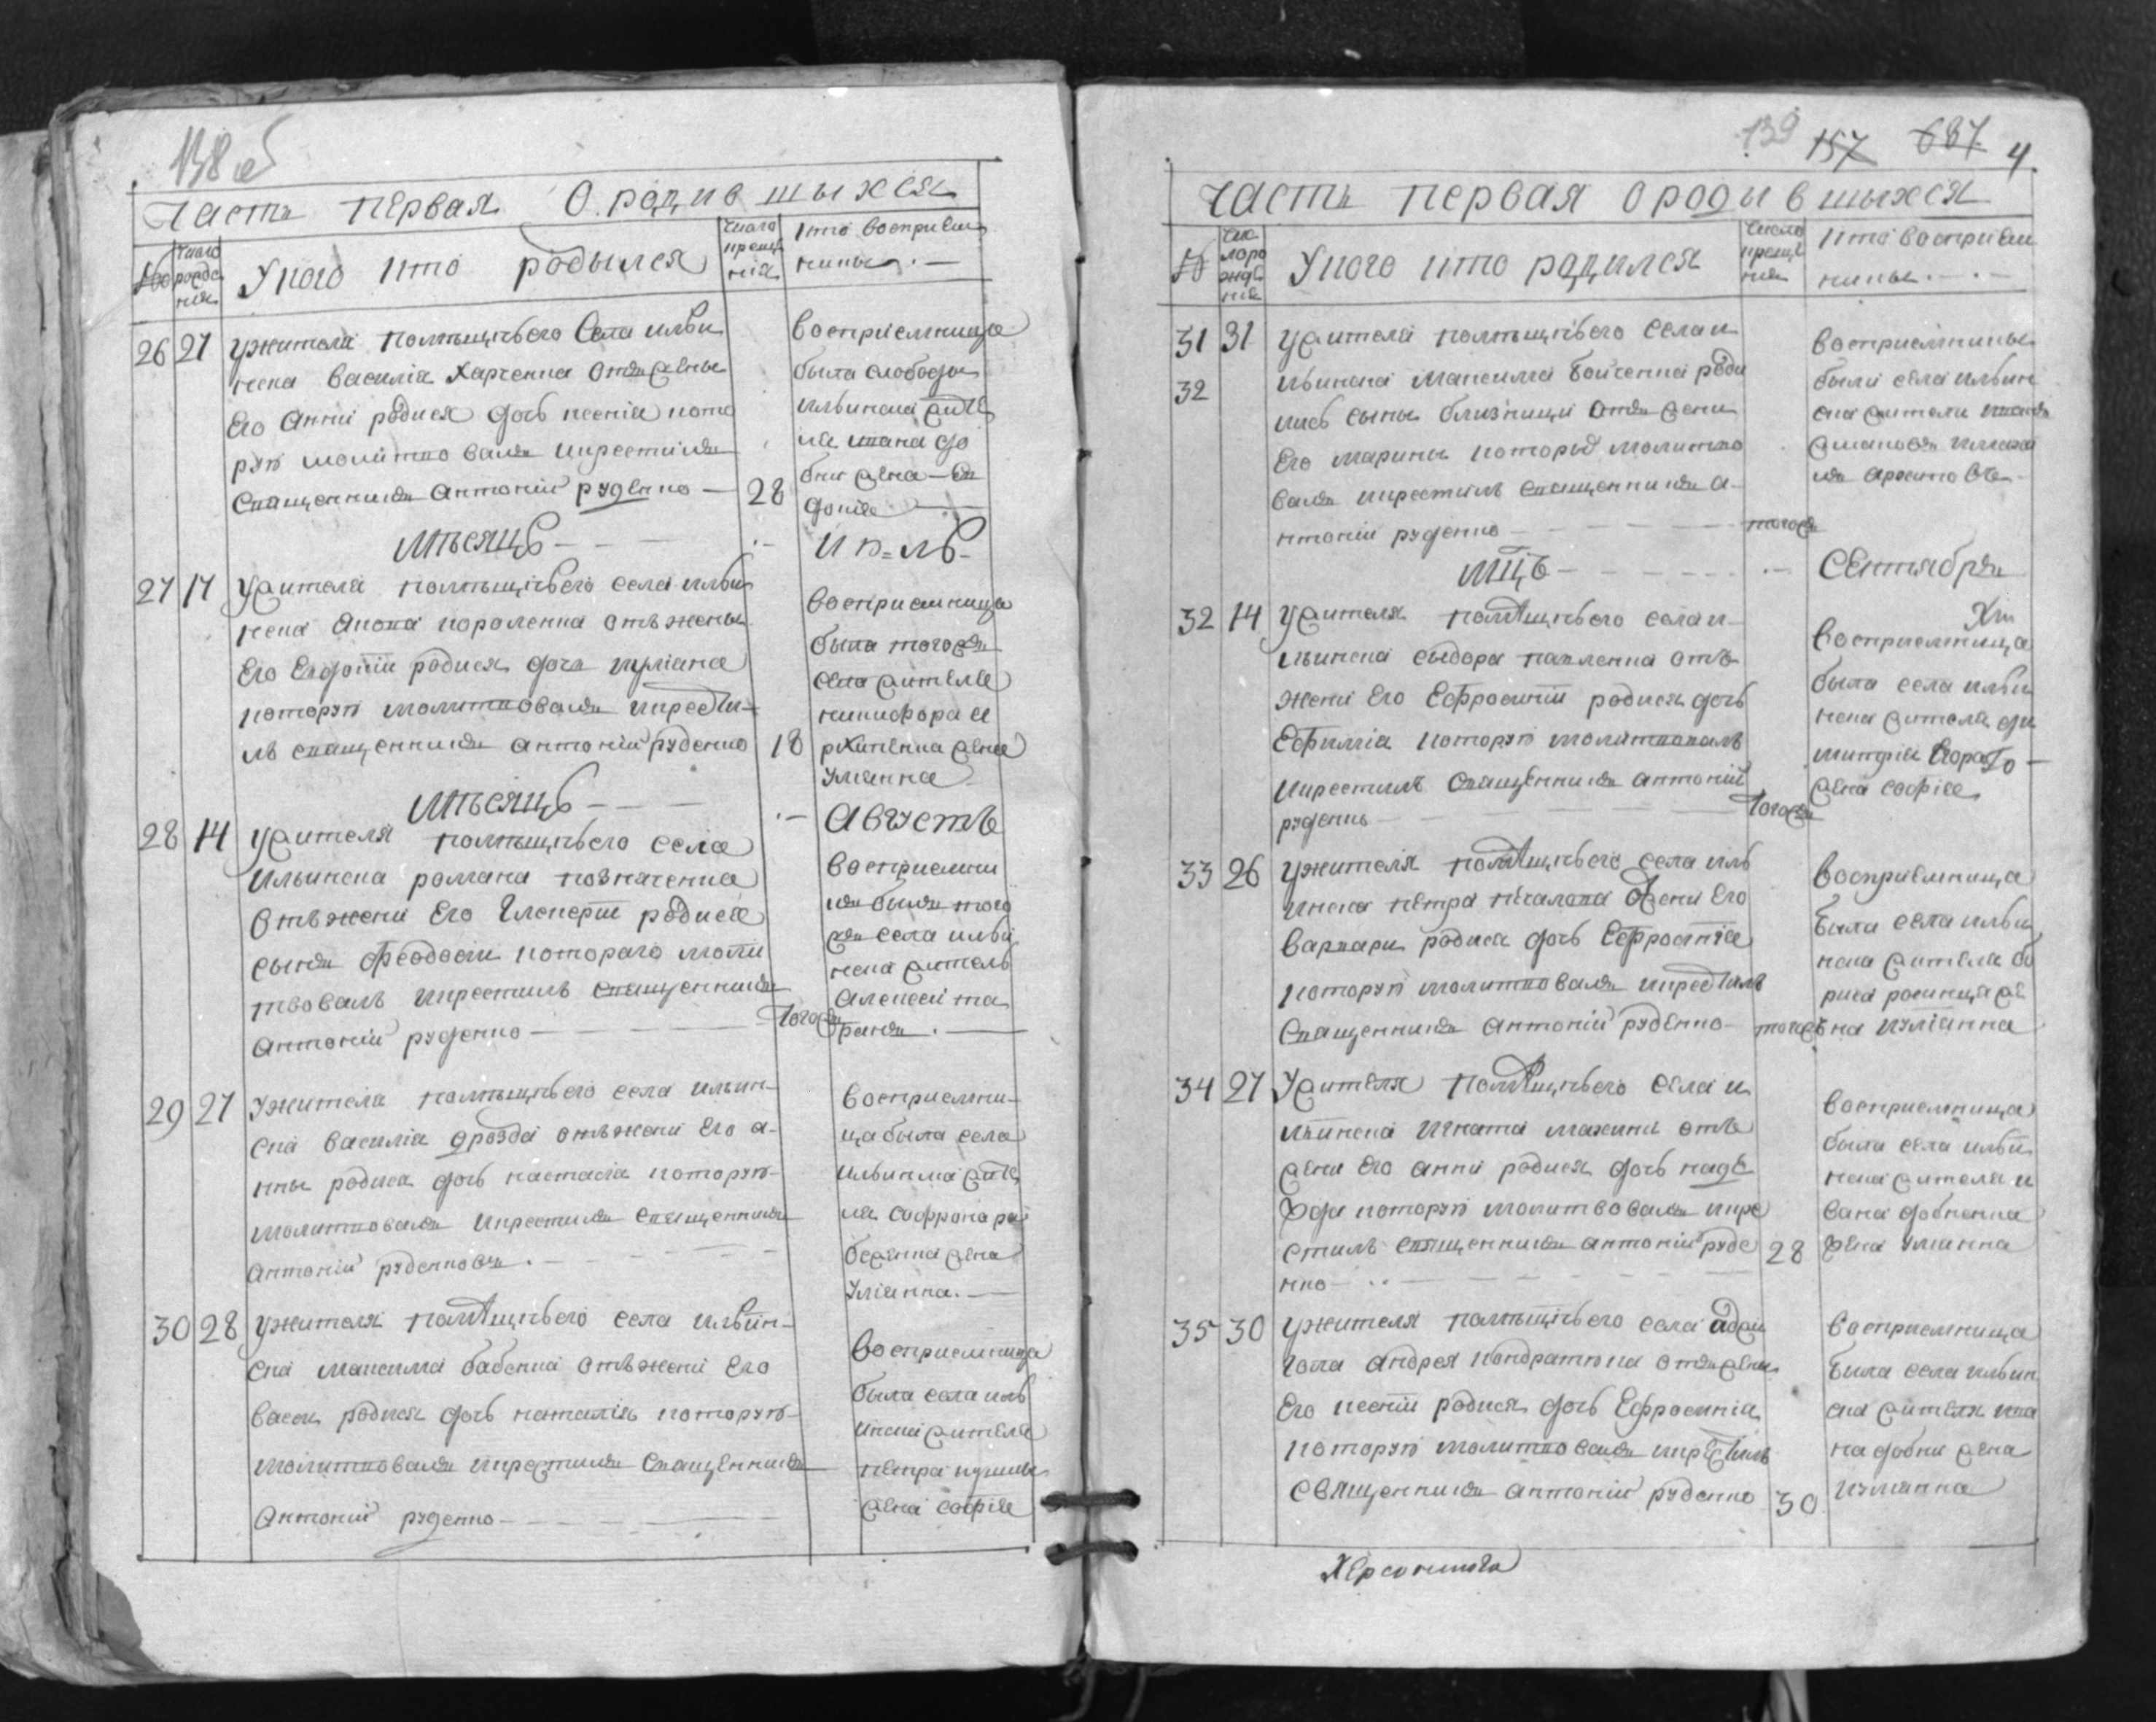 138 об
Часть первая О родившыхся
№
Число рожде нія
У кого кто родылся
Число креще нія
Кто воспріем ники
26 27 у жителя помѣщичього села Ильи
нска Василія Харченка отъ жены
Его Анни родися дочь Ксенія кото
рую молитвовалъ и крестилъ
Священникъ Антоній Руденко — 28
воспріемница
была слободы
Ильинска жите
ля Ивана До
бни жена — Ев
докія
Мѣсяцъ — Июль
27 17 У жителя помѣщичьего села Ильи
нска Анопа Короленка отъ жены
Его Евдокіи родися дочь Иуліана
которую молитвовалъ и крести
лъ священникъ Антоній Руденко 18
воспріемница
была того же
села жителя
Никифора
жена
Улиянна
Мѣсяцъ — Августъ
28 14 У жителя помѣщичьего села
Ильинска Романа Позначенка
отъ жени Его Гликеріи родися
сынъ Феодосій котораго моли
твовалъ и крестилъ священникъ
Антоній Руденко — того же
воспріемни
къ былъ того
же села Ильи
нска житель
Алексей Та
ранъ
29 27 У жителя помѣщичьего села Ильин
ска Василія Дрозда отъ жени Его А
нны родися дочь Настасія которую
молитвовалъ и крестилъ священникъ
Антоній Руденковъ
воспріемни
ца была села
Ильинска жите
ля Софрона Ря
бченка жена
Уліянна.
30 28 У жителя помѣщичьего села Ильин
ска Максима Бабенка отъ жени Его
Васси родися дочь Наталія которую
молитвовалъ и крестилъ Священникъ
Антоній Руденко
воспріемница
была села Иль
инска жителя
Петра
жена Софія
139 157 687 4
Часть первая о родившыхся
№
Чис ло ро жде нія
У кого кто родился
Число креще нія
Кто воспріем ники
31 31 У жителя помѣщичьего села И
32 льинска Максима Бойченка роди
лись сыны близнищи отъ жени
Его Марины которыхъ молитво
валъ и крестилъ священникъ А
нтоній Руденко — того же
воспріемники
были села Ильин
ска жители
Мцъ — Сентября
32 14 У жителя помѣщичьего села И
льинска Сыдора Павленка отъ
жени Его Ефросиніи родися дочь
Ефимія которую молитвовалъ
и крестилъ Священникъ Антоній
Руденко — того же
воспріемница
была села Ильи
нска жителя Ди
митрія
жена Софія
33 26 У жителя помѣщичьего села Иль
инска Петра Пѣхалова от жени Его
Варвари родися дочь Ефросинія
которую молитвовалъ и крестилъ
Священникъ Антоній Руденко — того ж
воспріемница
была села Ильи
нска жителя Бо
риса
жена Иуліанна
34 27 У жителя помѣщичьего села И
льинска Игната Махини отъ
жени Его Анни родися дочь Наде
жда которую молитвовалъ и кре
стилъ священникъ Антоній Руде 28
нко
воспріемница
была села Ильи
нска жителя И
вана Добненка
жена Улианна
35 30 У жителя помѣщичьего села Аджи
гола Андрея Кондратюка отъ жены
Его Ксеніи родися дочь Ефросинія
которую молитвовалъ и крестилъ
священникъ Антоній Руденко 30
воспріемница
была села Ильин
ска жителя Ива
на Добни жена
Иулианна
Херсонского